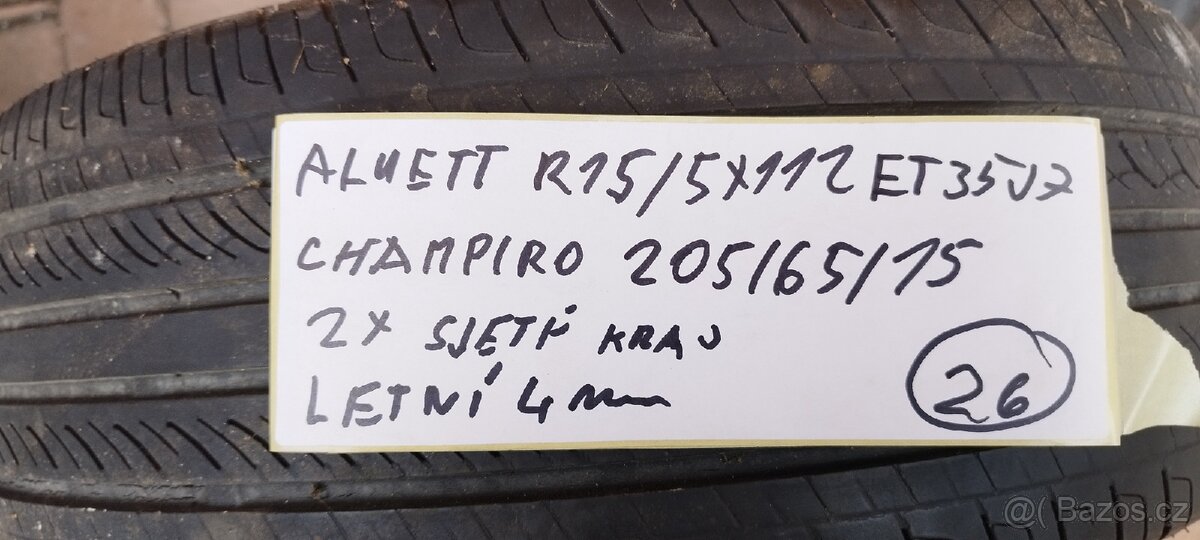 ALUETT R15/5X112 ET35 J7
CHAMPIRO 205/65/15
2X SJETÝ KRAJ
LETNÍ 4mm
26
@( Bazoš.cz